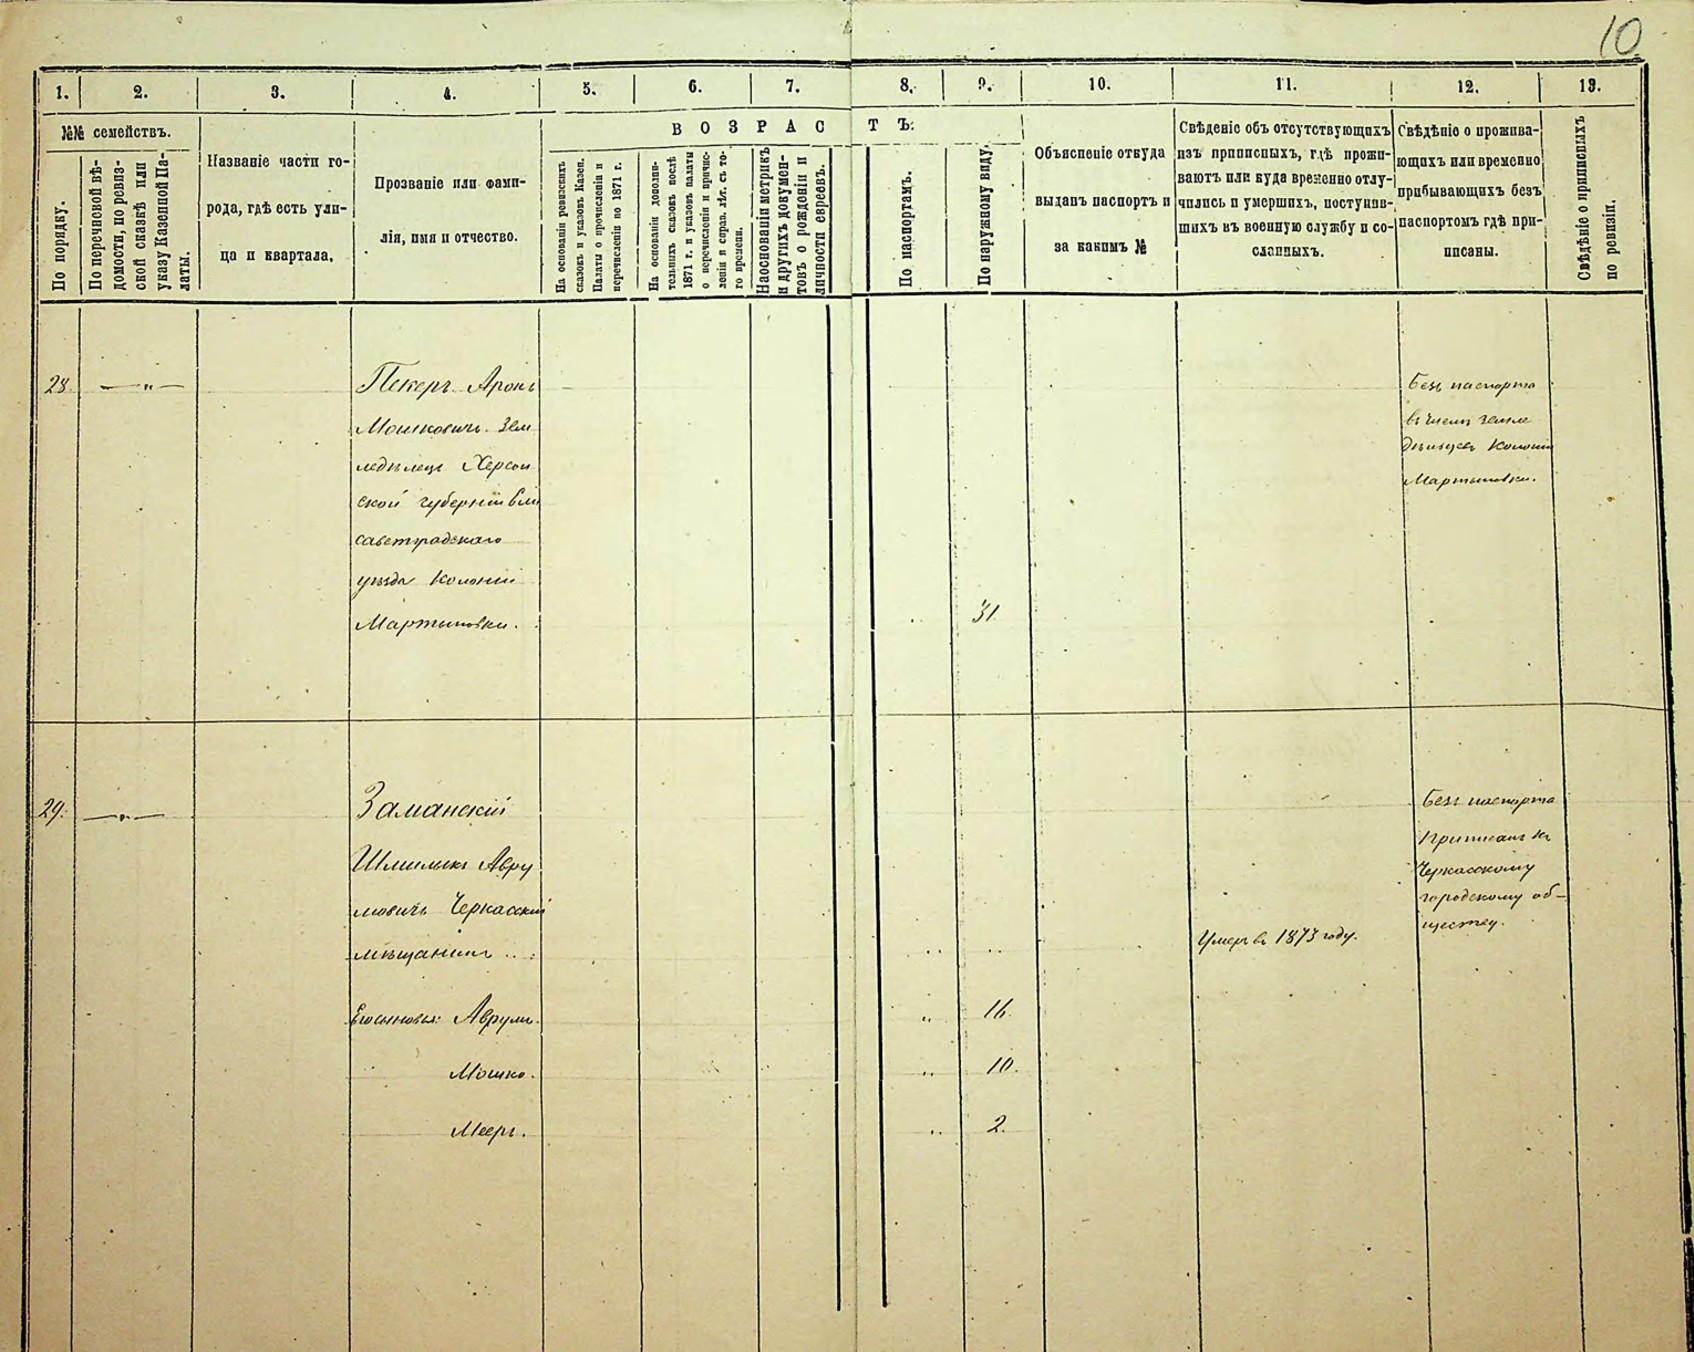 10
1. 2. 3. 4. 5. 6. 7. 8. 9. 10. 11. 12. 13.
№№ семействъ.
По порядку.
По перечневой вѣ-
домости, по ревиз-
ской сказкѣ или
указу Казенной Па-
латы.
Названіе части го-
рода, гдѣ есть ули-
ца и квартала.
Прозваніе или фами-
лія, имя и отчество.
ВОЗРАСТЪ.
На основаніи ревизскихъ
сказокъ и указовъ Казен.
Палаты о причисленіи и
перечисленіи по 1871 г.
На основаніи дополни-
тельныхъ сказокъ послѣ
1871 г. и указовъ палаты
о перечисленіи и причис-
леніи и справ. лѣт. съ то-
го времени.
На основаніи метрикъ
и другихъ докумен-
товъ о рожденіи и
личности евреевъ.
По паспортамъ.
По наружному виду.
Объясненіе откуда
выданъ паспортъ и
за какимъ №
Свѣденіе объ отсутствующихъ
изъ приписныхъ, гдѣ прожи-
ваютъ или куда временно отлу-
чились и умершихъ, поступив-
шихъ въ военную службу и со-
сланныхъ.
Свѣдѣніе о прожива-
ющихъ или временно
прибывающихъ безъ
паспортомъ гдѣ при-
писаны.
Свѣдѣніе о приписныхъ
по ревизіи.
28. — „ —
Пекеръ Аронъ
Мошковичъ Зем
ледѣлецъ Херсон
ской губерніи Ели
саветградскаго
уѣзда Колоніи
Мартыновки.
31.
Безъ паспорта
въ числѣ земле
дѣльцевъ Колоніи
Мартыновки.
29. — „ —
Заманскій
Шмилыкъ Авру
мовичъ Черкасскій
мѣщанинъ
Умеръ въ 1873 году.
Безъ паспорта
Приписанъ къ
Черкасскому
городскому об-
ществу.
Его сыновья: Аврумъ. „ 16.
Мошко. „ 10.
Мееръ. „ 2.